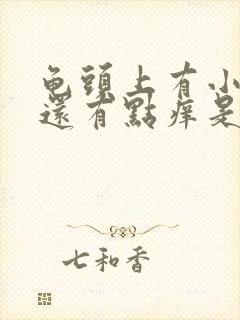 龟頭上有小
還有點痒是
七和香